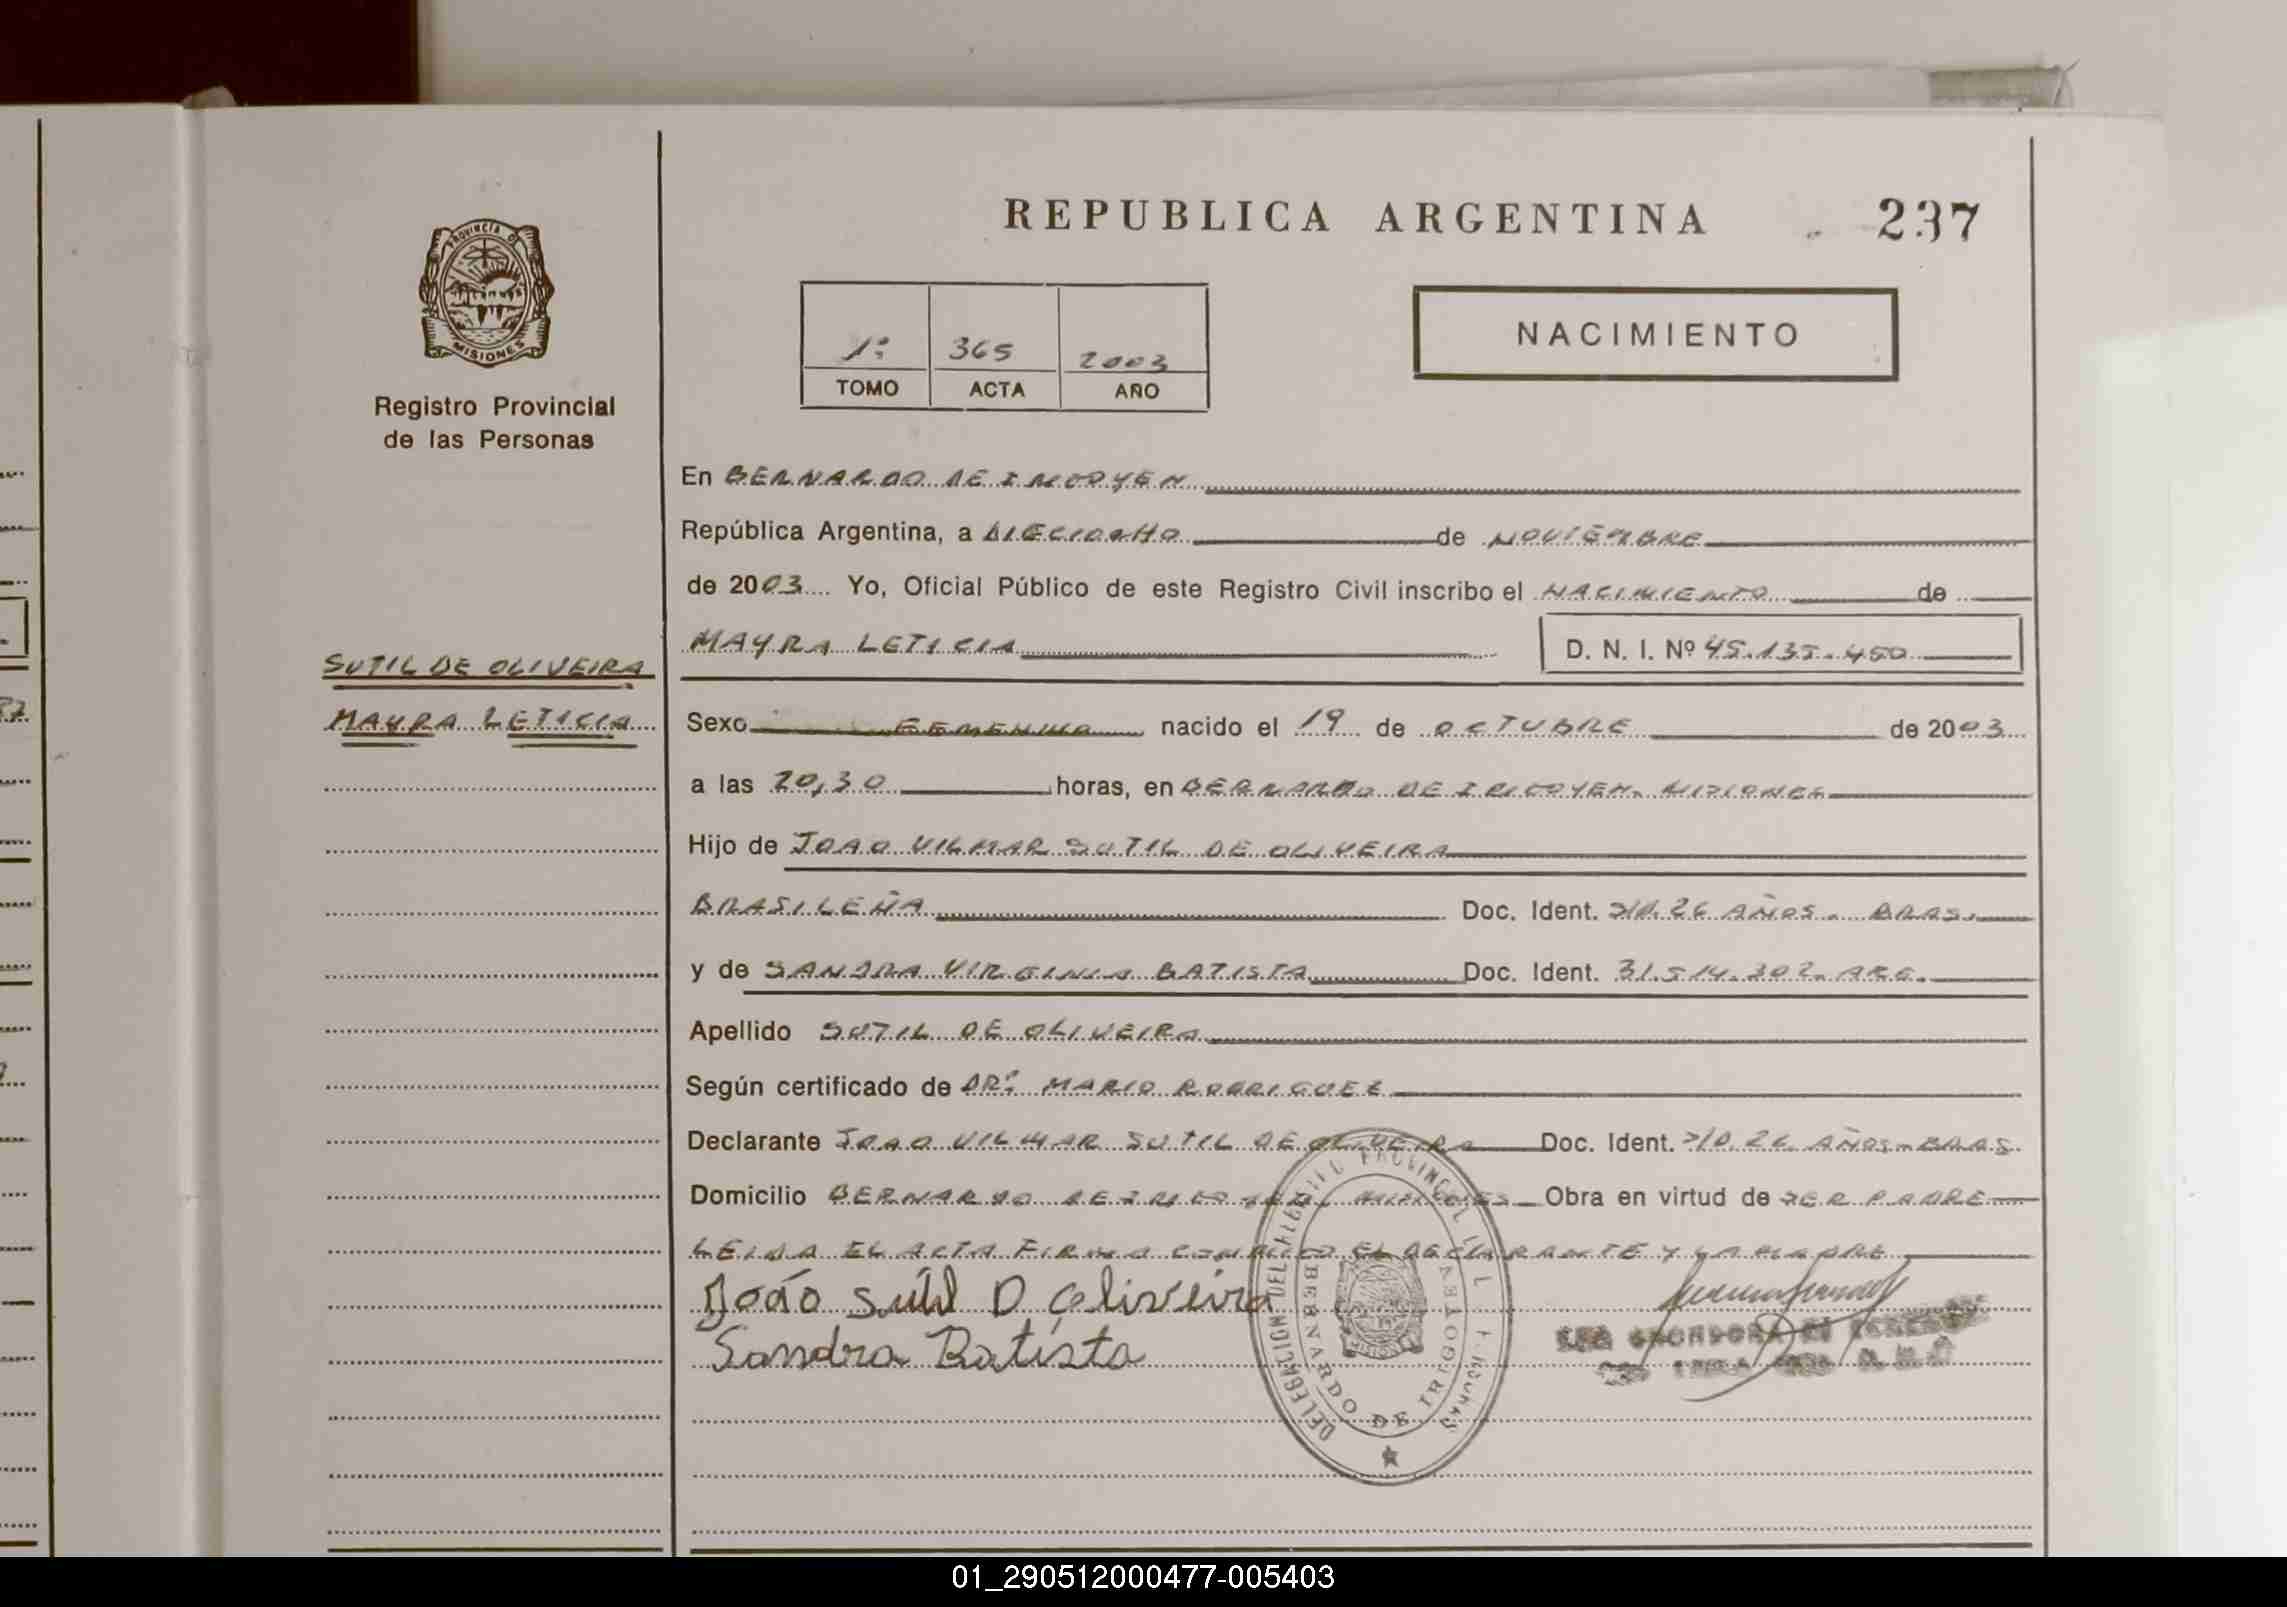 237
REPUBLICA ARGENTINA
NACIMIENTO
PROVINCIA DE
MISIONES
Registro Provincial
de las Personas
1º 365 2003
TOMO ACTA AÑO
En BERNARDO DE IRIGOYEN
República Argentina, a DIECIOCHO de NOVIEMBRE
de 2003 Yo, Oficial Público de este Registro Civil inscribo el NACIMIENTO de
MAYRA LETICIA D. N. I. Nº 45.135.450
SUTIL DE OLIVEIRA
MAYRA LETICIA
Sexo FEMENINO nacido el 19 de OCTUBRE de 2003
a las 20,30 horas, en BERNARDO DE IRIGOYEN. MISIONES
Hijo de JOAO VILMAR SUTIL DE OLIVEIRA
BRASILEÑA Doc. Ident. S/D. 26 AÑOS. BRAS.
y de SANDRA VIRGINIA BATISTA Doc. Ident. 31.514.302. ARG.
Apellido SUTIL DE OLIVEIRA
Según certificado de DR: MARIO RODRIGUEZ
Declarante JOAO VILMAR SUTIL DE OLIVEIRA Doc. Ident. S/D. 26 AÑOS-BRAS.
Domicilio BERNARDO DE IRIGOYEN. MISIONES Obra en virtud de SER PADRE
LEIDA EL ACTA FIRMA CONMIGO EL DECLARANTE Y LA MADRE
João Sutil D Oliveira
Sandra Batista
DELEGACION DEL REGISTRO PROVINCIAL DE LAS PERSONAS
BERNARDO DE IRIGOYEN
01_290512000477-005403